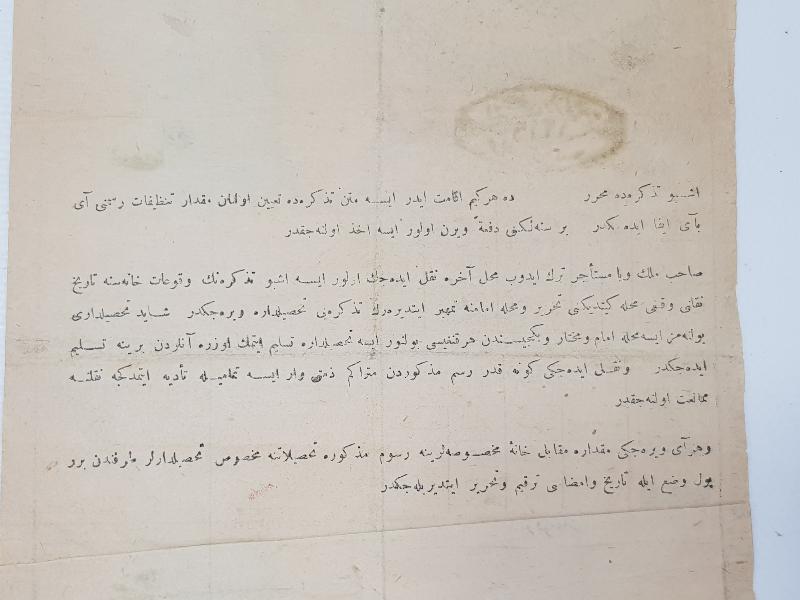 اشبو تذكره‌ده محرر ده هركيم اقامت ايدر ايسه متن تذكره‌ده تعيين اولنان مقدار تنظيفات رسمنى آى
بآى ايفا ايده‌جكدر بر سنه‌لكنى دفعةً ويرن اولور ايسه اخذ اولنه‌جقدر
صاحب ملك ويا مستأجر ترك ايدوب محل آخره نقل ايده‌جك اولور ايسه اشبو تذكره‌نك وقوعات خانه‌سنه تاريخ
نقلنى وقنغى محله كيتديكنى تحرير ومحله امامنه تمهير ايتديره‌رك تذكره‌يى تحصيلداره ويره‌جكدر شايد تحصيلدارى
بوله‌مز ايسه محله امام ومختار وبكجيسندن هرقنغيسى بولنور ايسه تحصيلداره تسليم ايتمك اوزره آنلردن برينه تسليم
ايده‌جكدر ونقل ايده‌جكى كونه قدر رسم مذكوردن متراكم ذمتى وار ايسه تماميله تأديه ايتمدكجه نقلنه
ممانعت اولنه‌جقدر
وهر آى ويره‌جكى مقداره مقابل خانهٔ مخصوصه‌لرينه رسوم مذكوره تحصيلاتنه مخصوص تحصيلدارلر طرفندن برر
پول وضع ايله تاريخ وامضاسى ترقيم وتحرير ايتديريله‌جكدر